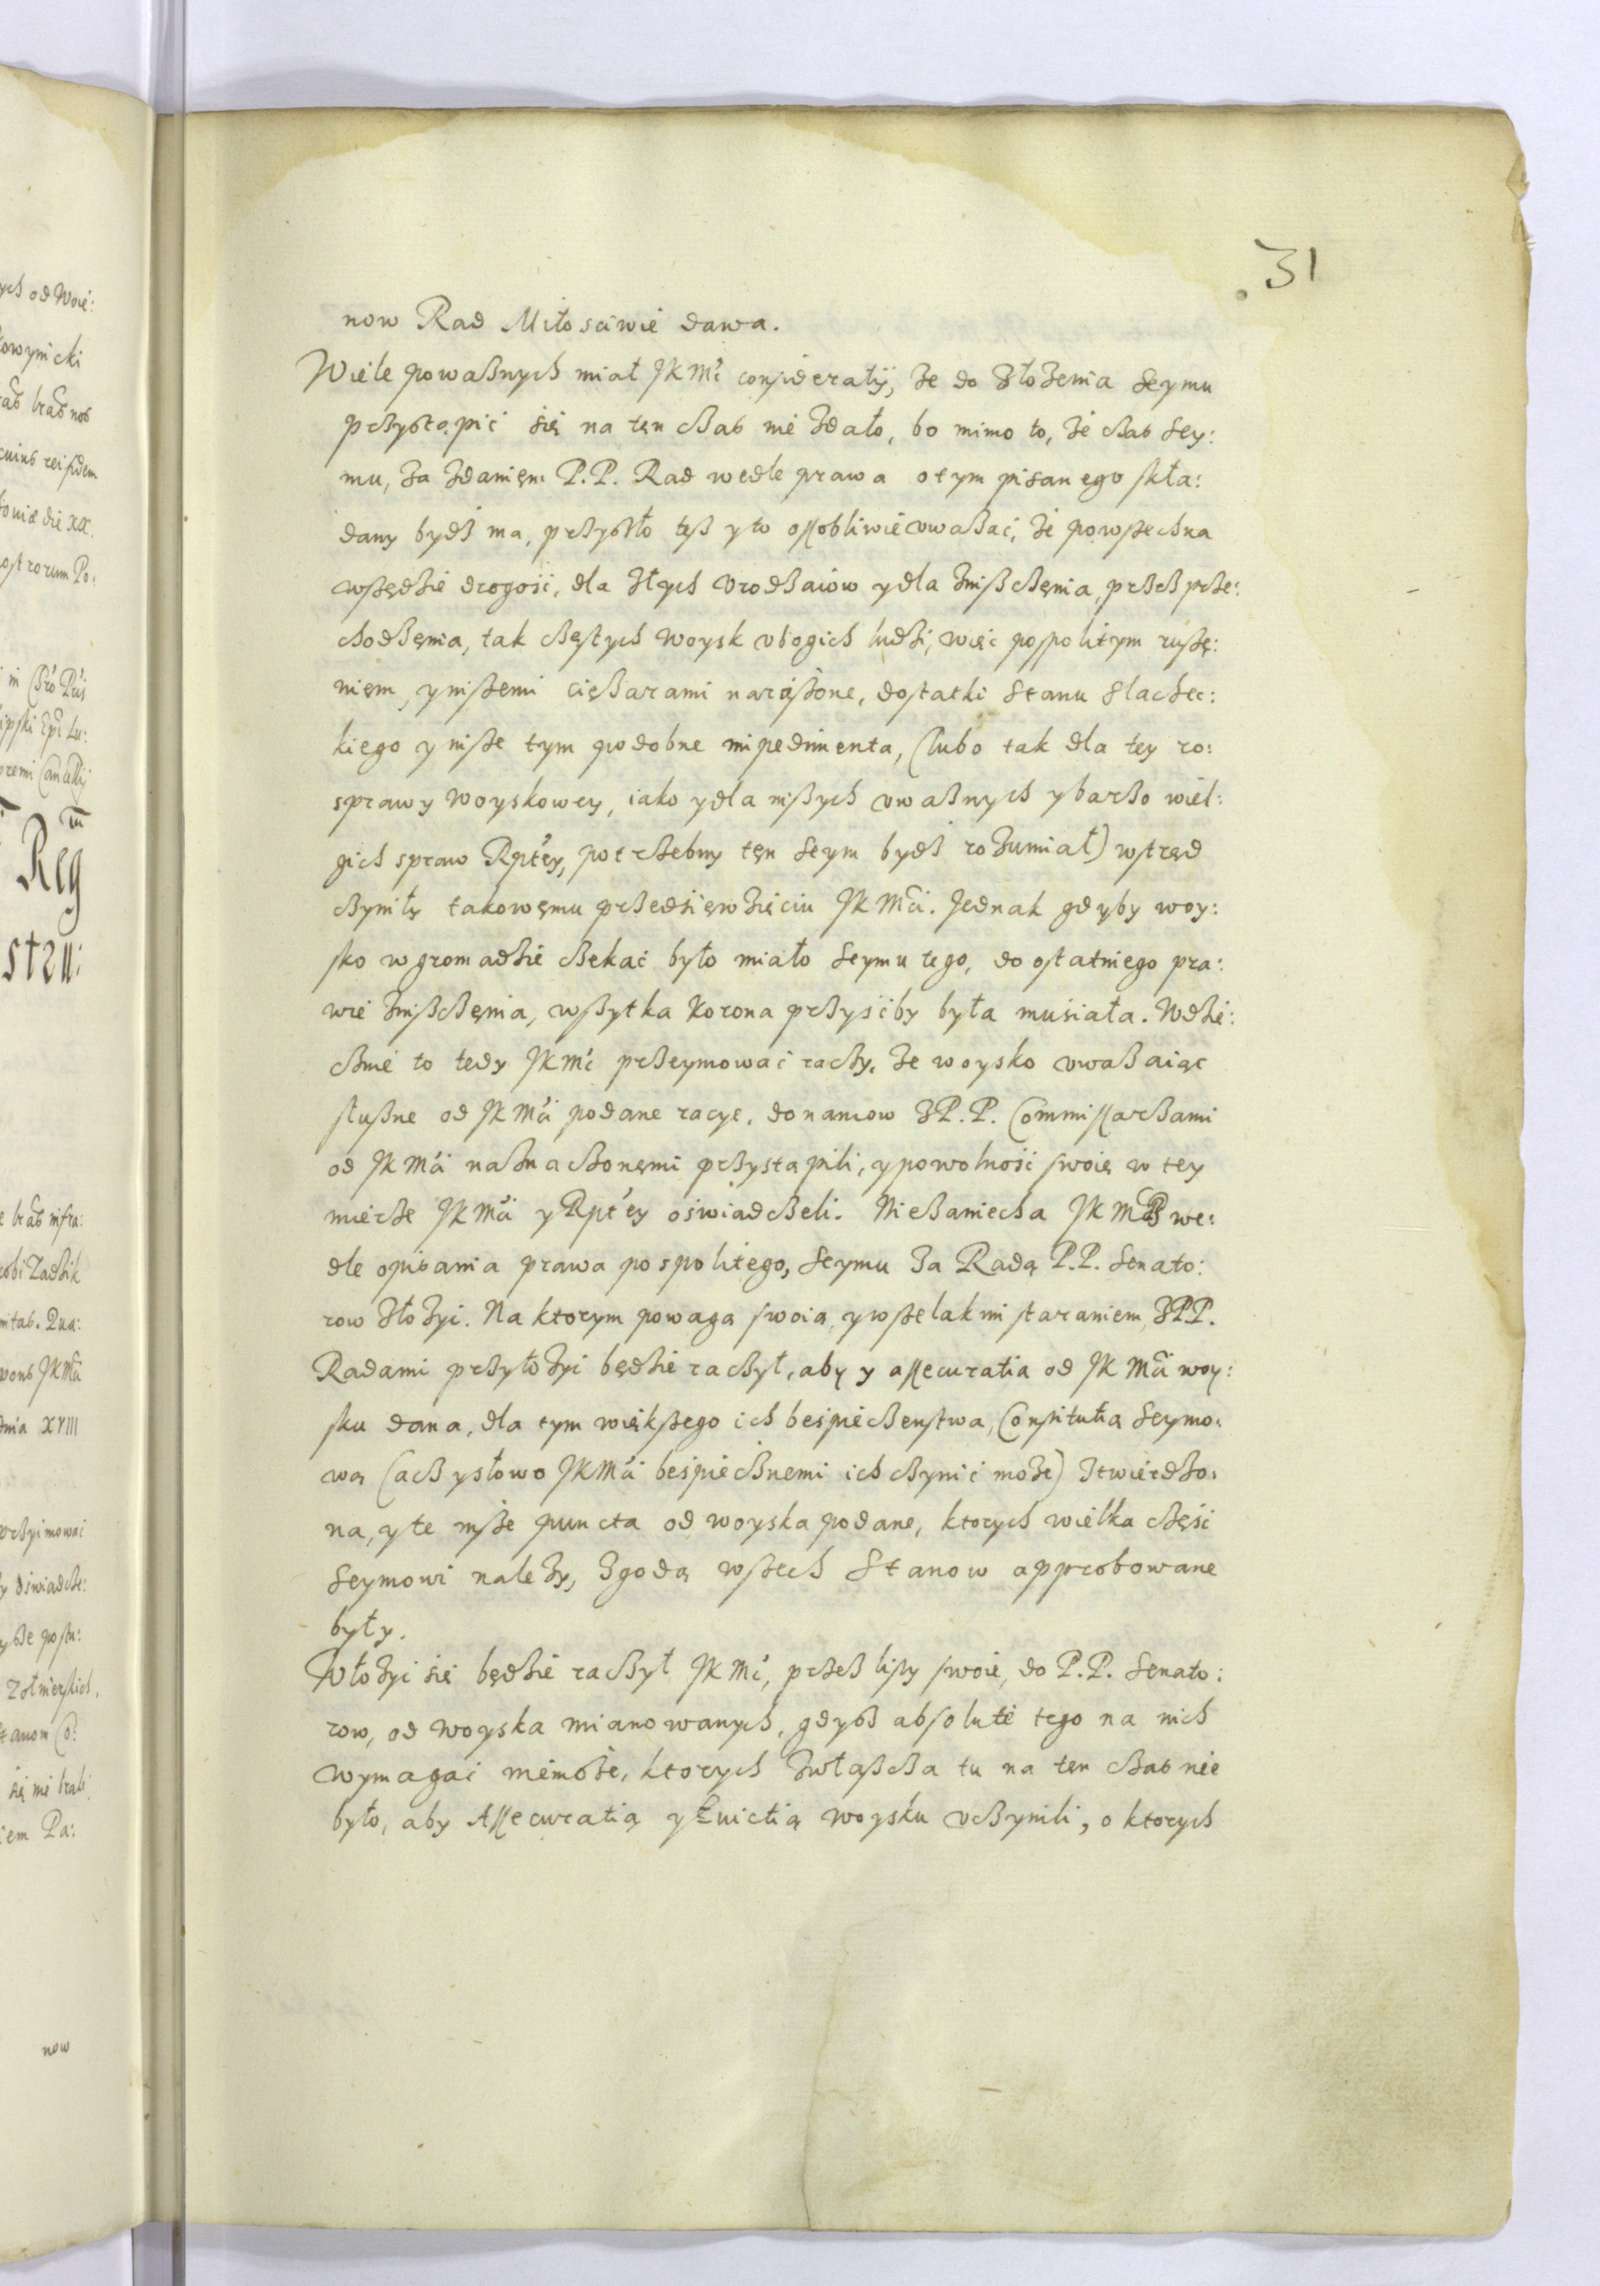 31
now Rad Miłosciwie dawa.
Wiele powaznych miał JK Mć consideratiy, ze do złozenia Seymu
przystąpić się na tęn czas nie zdało, bo mimo to, ze czas Sey:
mu, za zdanięm P.P. Rad wedle prawa o tym pisanego skła:
dany bydz ma, przyszło tesz y to ossobliwie uwazać, ze powszechna
wszędzie drogość, dla złych urodzaiow y dla zniszczęnia, przez prze:
chodzęnia, tak częstych woysk ubogich ludzi, więc pospolitym ruszę:
nięm, y inszemi cięzarami narażone, dostatki Stanu Slachec:
kiego y insze tym podobne impedimenta, (lubo tak dla tey ro:
sprawy woyskowey, iako y dla inszych uwaznych y barzo wiel:
gich spraw Rptey, potrzebny tęn Seym bydz rozumiał) wstręd
czyniły takowęmu przedsięwzięciu JK Mći. Jednak gdyby woy:
sko w gromadzie czekać było miało Seymu tego, do ostatniego pra:
wie zniszczęnia, wszytka Korona przyśćby była musiała. Wdzię:
cznie to tedy JK Mć przeymować raczy, ze woysko uwazaiąc
słuszne od JK Mći podane racye, do namow z P.P. Commissarzami
od JK Mći naznaczonęmi przystąpili, y powolność swoię w tey
mierze JK Mći y Rptey oświadczeli. Niezaniecha JK Mć we:
dle opisania prawa pospolitego, Seymu za Radą P.P. Senato:
row złozyć. Na ktorym powagą swoią, y wszelakim staraniem, z PP.
Radami przyłozyć będzie raczył, aby y assecuratia od JK Mći woy:
sku dana, dla tym większego ich bespieczenstwa, Constitutią Seymo:
wą (acz y słowo JK Mći bespiecznemi ich czynić może) ztwierdzo:
na, y te insze puncta od woyska podane, ktorych wielka część
Seymowi nalezy, zgodą wszech Stanow approbowane
były.
Włozyć się będzie raczył JK Mć, przez listy swoie, do P.P. Senato:
row, od woyska mianowanych, gdysz absolute tego na nich
wymagać niemoże, ktorych zwłaszcza tu na ten czas nie
było, aby Assecuratią y Evictią woysku uczynili, o ktorych
now